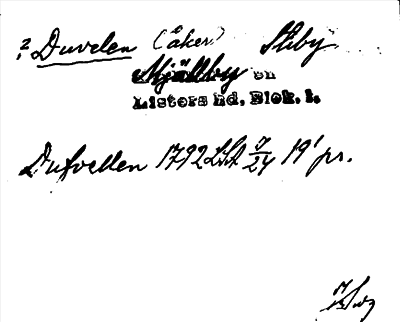 ? Duvelen (åker) Stiby
Mjällby sn
Listers hd, Blek. l.
Dufvellen 1792 LSA 7/24 19' pr.